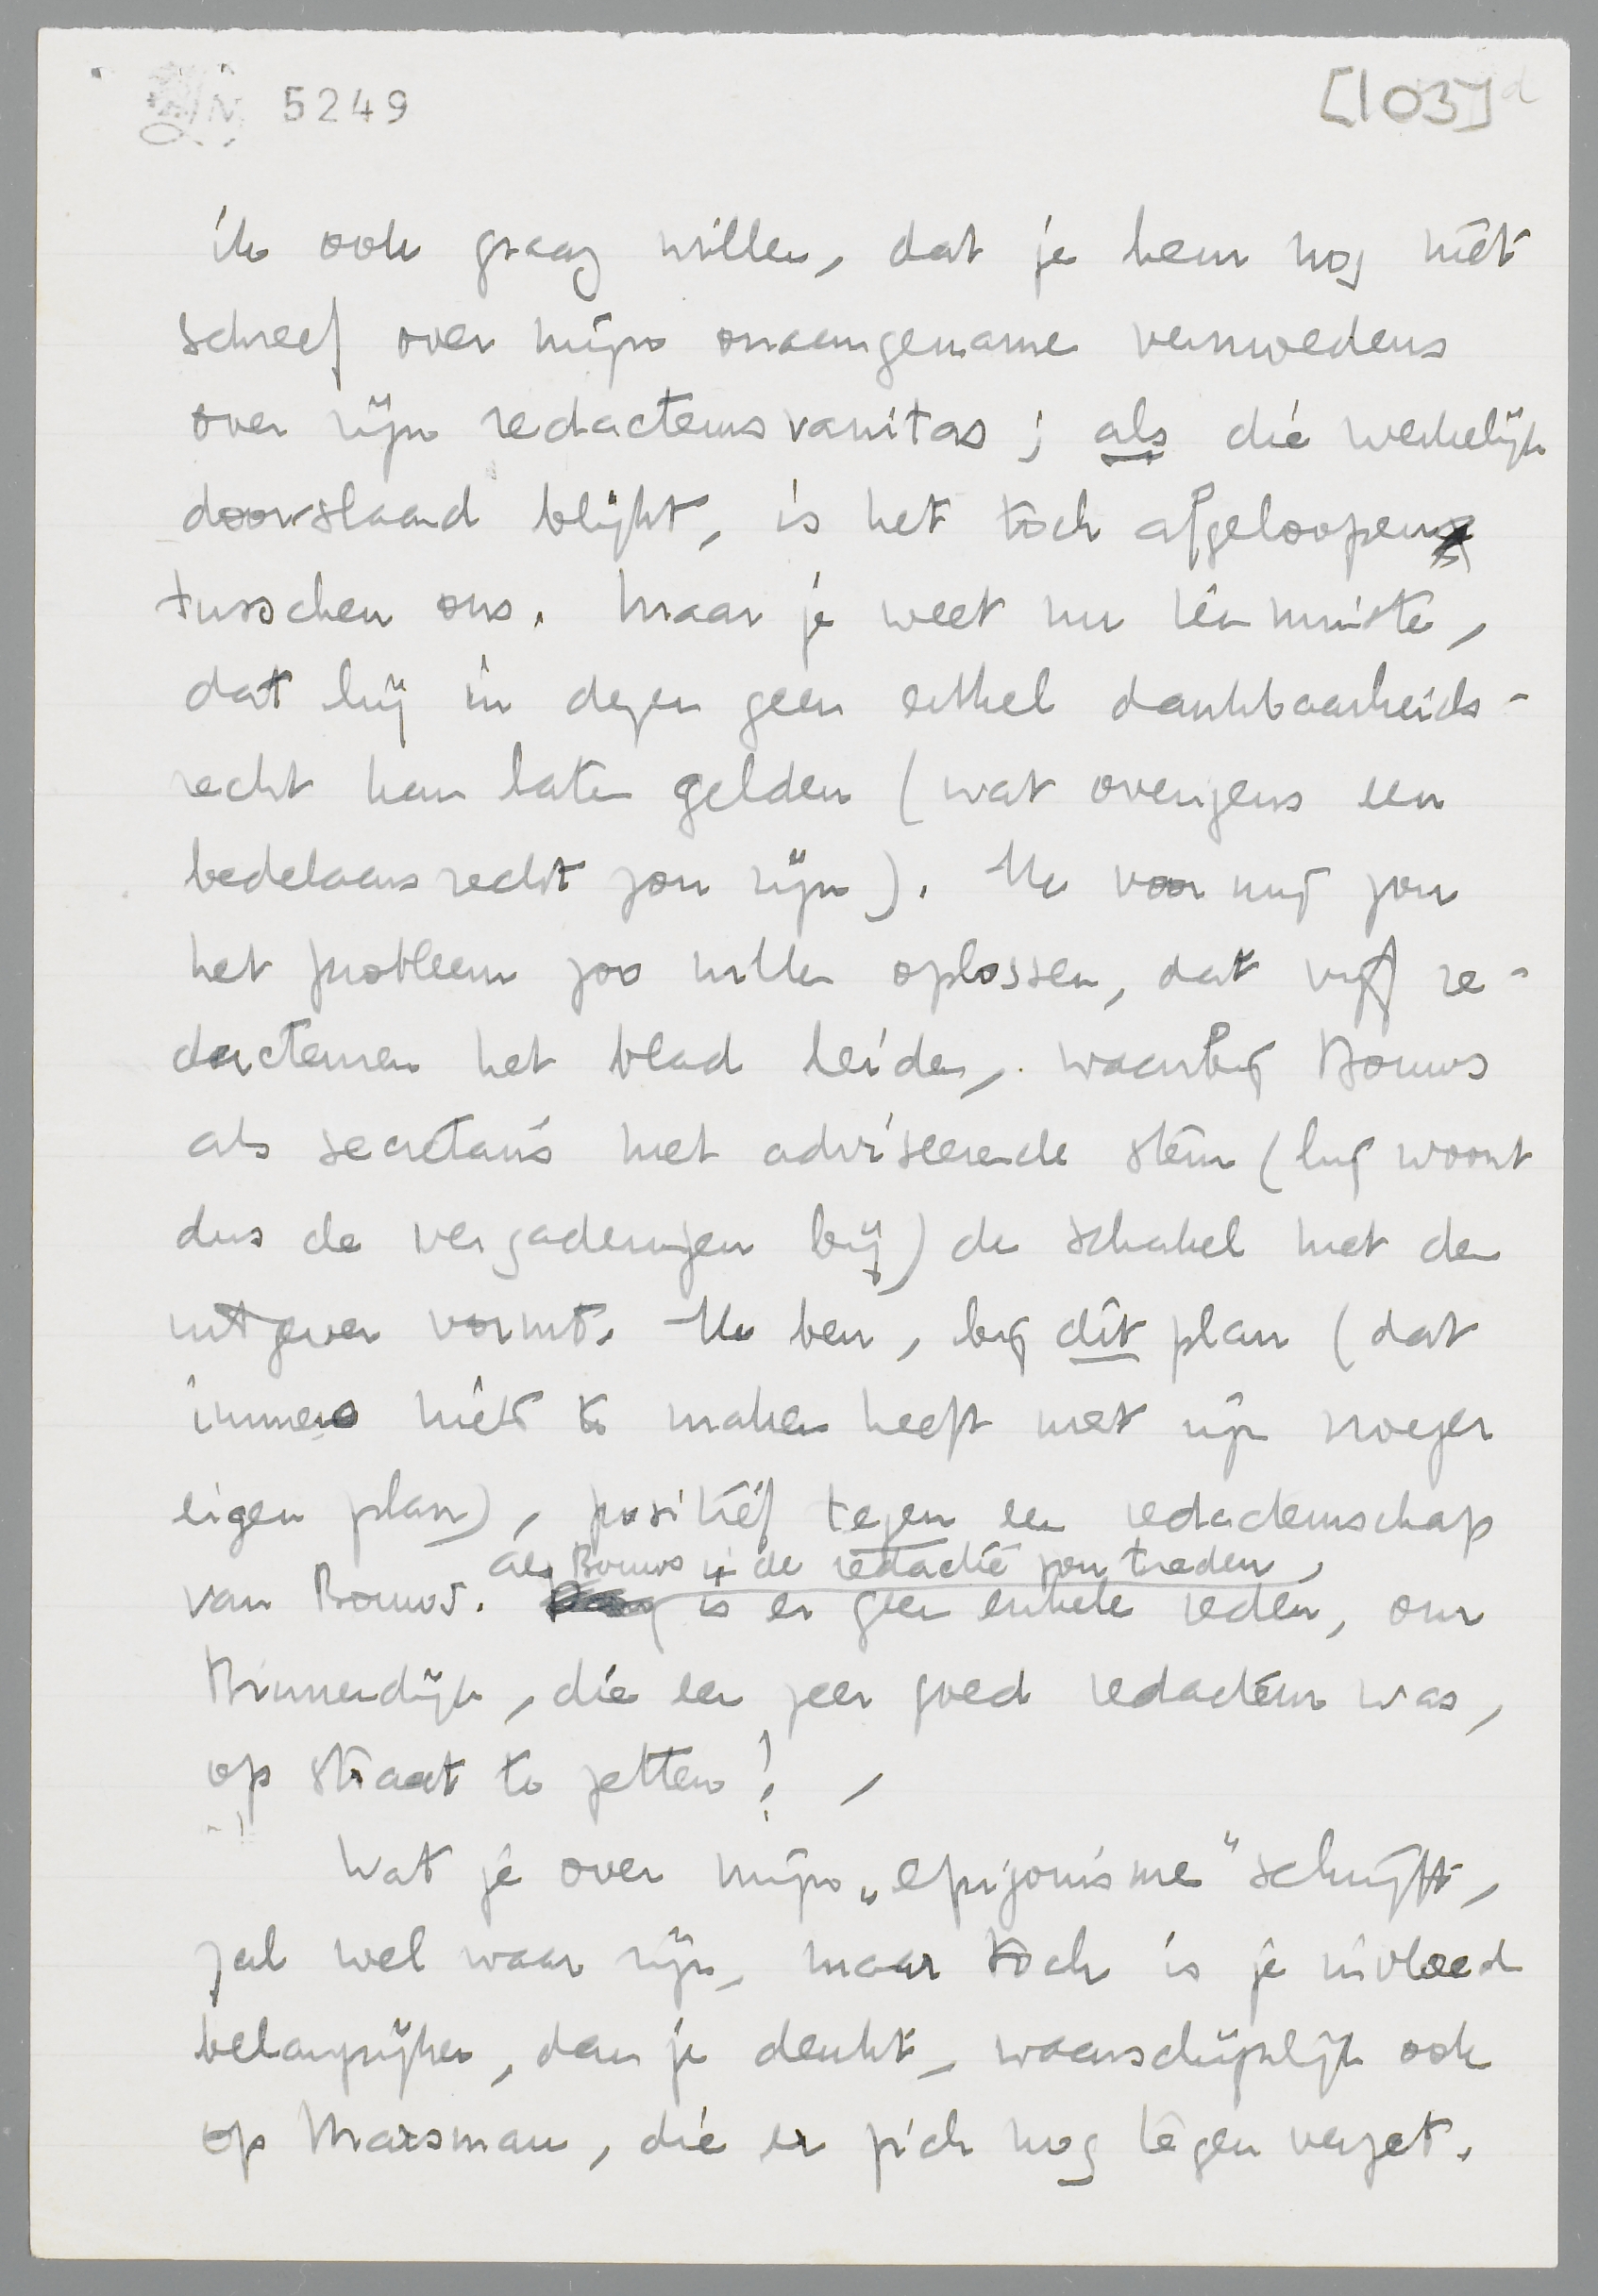 5249
[103]d
ik ook graag willen, dat je hem nog niet
schreef over mijn onaangename vermoedens
over zijn redacteursvanitas; als die werkelijk
doorslaand blijkt, is het toch afgeloopen
tusschen ons. Maar je weet nu tenminste,
dat hij in dezen geen enkel dankbaarheids-
recht kan laten gelden (wat overigens een
bedelaarsrecht zou zijn). Ik voor mij zou
het probleem zoo willen oplossen, dat vijf re-
dacteuren het blad leiden, waarbij Bouws
als secretaris met adviseerende stem (hij woont
dus de vergaderingen bij) de schakel met den
uitgever vormt. Ik ben, bij dit plan (dat
immers niets te maken heeft met zijn vroeger
eigen plan), positief tegen een redacteurschap
van Bouws. Als Bouws in de redactie zou treden,
is er geen enkele reden, om
Binnendijk, die een zeer goed redacteur was,
op straat te zetten!
Wat je over mijn „epigonisme" schrijft,
zal wel waar zijn, maar toch is je invloed
belangrijker, dan je denkt, waarschijnlijk ook
op Marsman, die er zich nog tegen verzet.